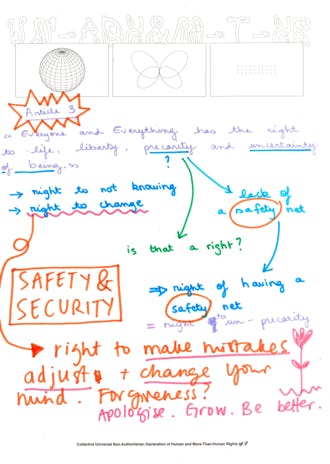 Article 3
"Everyone and Everything has the right
to life, liberty, precarity and uncertainty
of being.»
?
→ right to not knowing
→ right to change
lack of
a safety net
is that a right?
SAFETY &
SECURITY
⇒ right of having a
safety net
= right to un-precarity
right to make mistakes
adjust + change your
mind. Forgiveness?
Apologise. Grow. Be better.
Collective Universal Non-Authoritarian Declaration of Human and More-Than-Human Rights